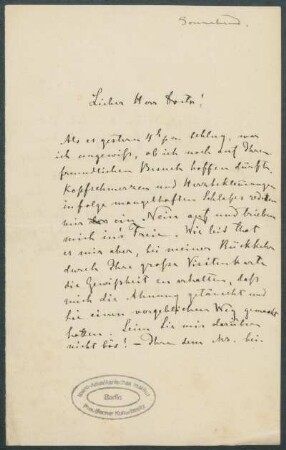 Sonnabend.
Lieber Herr Doctor!
Als es gestern 4 h pm. schlug, war
ich ungewiß, ob ich noch auf Ihren
freundlichen Besuch hoffen durfte.
Kopfschmerzen und Herzbeklemmungen
infolge mangelhaften Schlafes redeten
mir ein Nein auf und trieben
mich in's Freie. Wie leid that
es mir aber, bei meiner Rückkehr
durch Ihre große Visitenkarte
die Gewißheit zu erhalten, daß
mich die Ahnung getäuscht und
Sie einen vergeblichen Weg gemacht
hatten. Seien Sie mir darüber
nicht bös! – Ihrem dem
Ibero-Amerikanisches Institut
Berlin
Preußischer Kulturbesitz